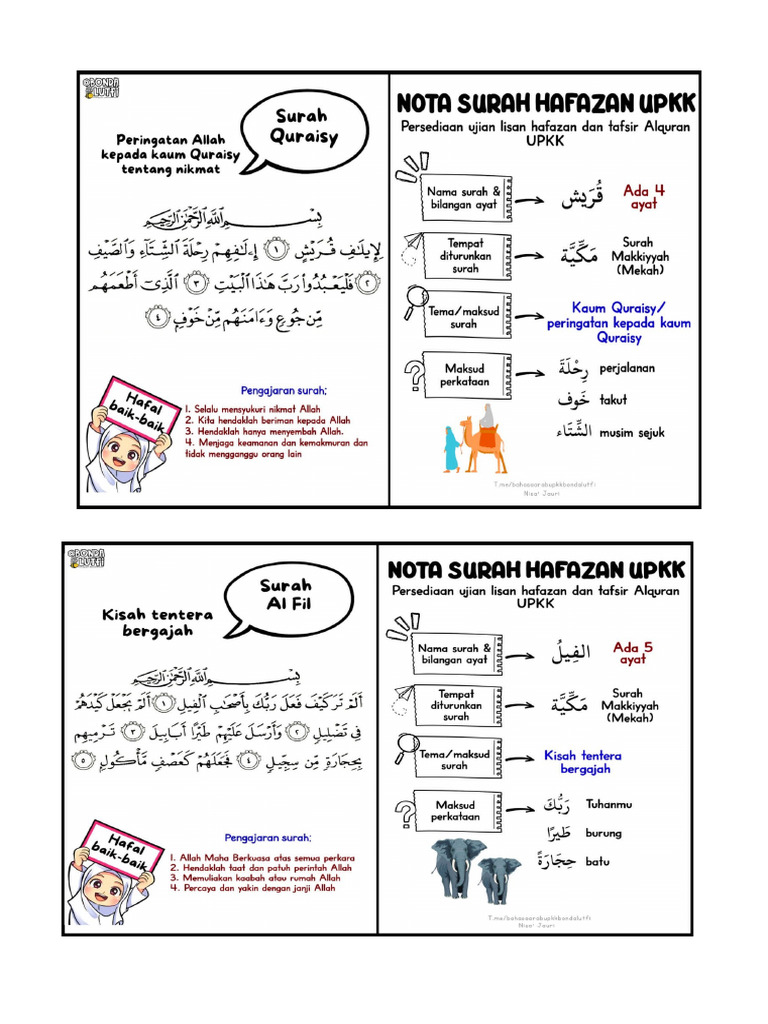 @BONDA
LUTFI
Surah
Quraisy
Peringatan Allah
kepada kaum Quraisy
tentang nikmat
بِسْمِ ٱللَّهِ ٱلرَّحْمَٰنِ ٱلرَّحِيمِ
لِإِيلَٰفِ قُرَيْشٍ ١ إِۦلَٰفِهِمْ رِحْلَةَ ٱلشِّتَآءِ وَٱلصَّيْفِ
٢ فَلْيَعْبُدُوا۟ رَبَّ هَٰذَا ٱلْبَيْتِ ٣ ٱلَّذِىٓ أَطْعَمَهُم
مِّن جُوعٍ وَءَامَنَهُم مِّنْ خَوْفٍۭ ٤
Hafal
baik-baik
Pengajaran surah:
1. Selalu mensyukuri nikmat Allah
2. Kita hendaklah beriman kepada Allah
3. Hendaklah hanya menyembah Allah.
4. Menjaga keamanan dan kemakmuran dan
tidak mengganggu orang lain
NOTA SURAH HAFAZAN UPKK
Persediaan ujian lisan hafazan dan tafsir Alquran
UPKK
Nama surah &
bilangan ayat
قُرَيش
Ada 4
ayat
Tempat
diturunkan
surah
مَكِّيَّة
Surah
Makkiyyah
(Mekah)
Tema/maksud
surah
Kaum Quraisy/
peringatan kepada kaum
Quraisy
Maksud
perkataan
رِحْلَةَ perjalanan
خَوف takut
الشِّتَاء musim sejuk
T.me/bahasaarabupkkbondalutfi
Nisa' Jauri
@BONDA
LUTFI
Surah
Al Fil
Kisah tentera
bergajah
بِسْمِ ٱللَّهِ ٱلرَّحْمَٰنِ ٱلرَّحِيمِ
أَلَمْ تَرَ كَيْفَ فَعَلَ رَبُّكَ بِأَصْحَٰبِ ٱلْفِيلِ ١ أَلَمْ يَجْعَلْ كَيْدَهُمْ
فِى تَضْلِيلٍ ٢ وَأَرْسَلَ عَلَيْهِمْ طَيْرًا أَبَابِيلَ ٣ تَرْمِيهِم
بِحِجَارَةٍ مِّن سِجِّيلٍ ٤ فَجَعَلَهُمْ كَعَصْفٍ مَّأْكُولٍۭ ٥
Hafal
baik-baik
Pengajaran surah:
1. Allah Maha Berkuasa atas semua perkara
2. Hendaklah taat dan patuh perintah Allah
3. Memuliakan kaabah atau rumah Allah
4. Percaya dan yakin dengan janji Allah
NOTA SURAH HAFAZAN UPKK
Persediaan ujian lisan hafazan dan tafsir Alquran
UPKK
Nama surah &
bilangan ayat
الفِيلُ
Ada 5
ayat
Tempat
diturunkan
surah
مَكِّيَّة
Surah
Makkiyyah
(Mekah)
Tema/maksud
surah
Kisah tentera
bergajah
Maksud
perkataan
رَبُّكَ Tuhanmu
طَيرًا burung
حِجَارَةً batu
T.me/bahasaarabupkkbondalutfi
Nisa' Jauri